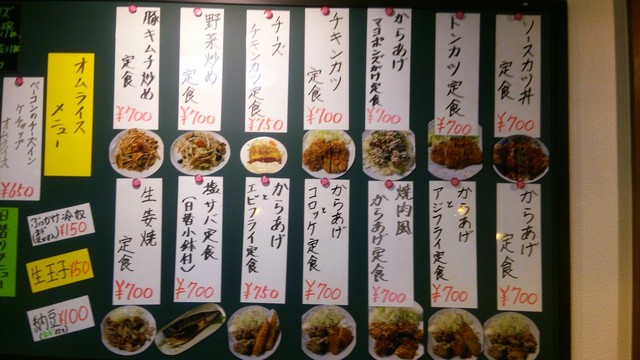 ソースカツ丼
定食
¥700
トンカツ定食
¥700
からあげ
マヨポンズがけ定食
¥700
チキンカツ
定食
¥700
チーズ
チキンカツ定食
¥750
野菜炒め
定食
¥700
豚キムチ炒め
定食
¥700
オムライス
メニュー
ベーコンのチーズイン
ケチャップ
オムライス
¥650
からあげ
定食
¥700
からあげ
と
アジフライ定食
¥700
焼肉風
からあげ定食
¥700
からあげ
と
コロッケ定食
¥700
からあげ
と
エビフライ定食
¥750
塩サバ定食
(日替小鉢付)
¥700
生姜焼
定食
¥700
ぶっかけ冷奴
¥150
生玉子¥50
納豆¥100
日替りメニュー